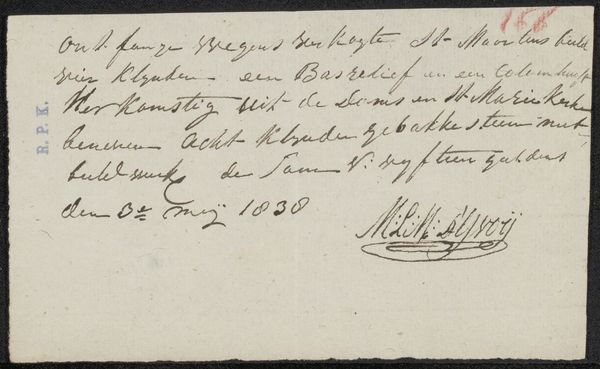 Ont fange wegens verkogte St Maartens beeld
vier Klynder een Basrelief en een
Her Komstig uit de Doms en St Marie Kerke
benevens Acht Klynder gebakke steen met
beeld werk de Som V: vyftien guldens
den 3e meij 1838
R. P. K.